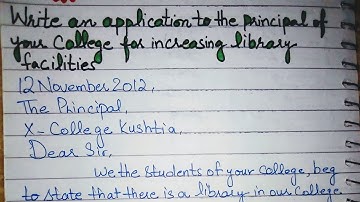 Write an application to the principal of
your College for increasing library
facilities
12 November 2012,
The Principal,
X - College Kushtia,
Dear Sir,
We the students of your college, beg
to state that there is a library in our College.